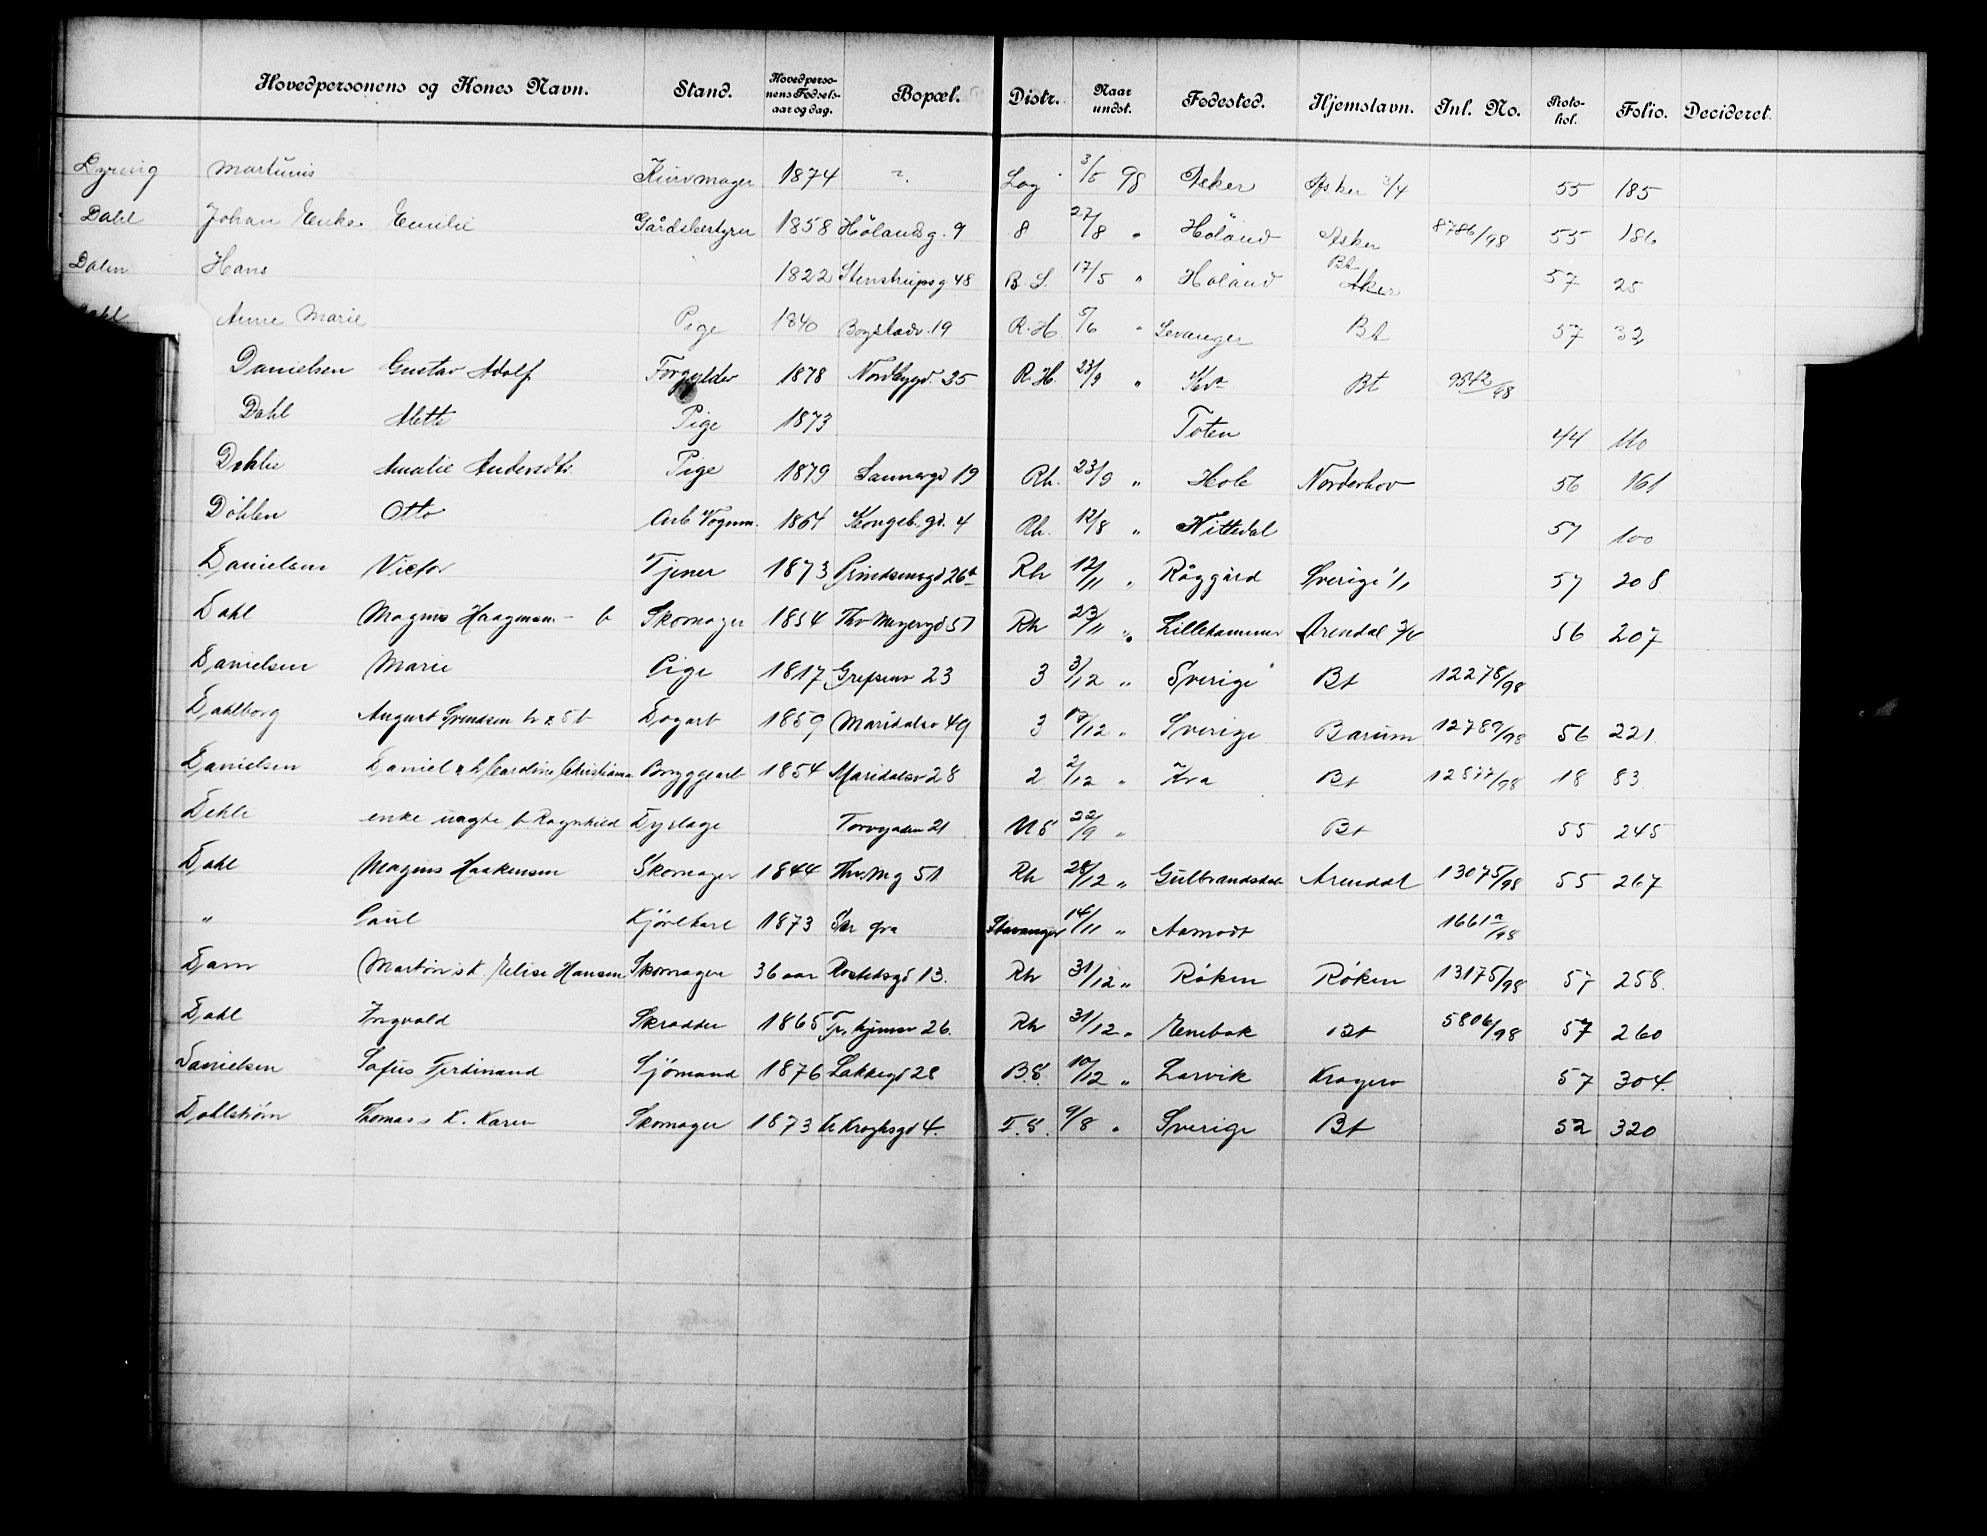 Hovedpersonens og Kones Navn. Stand. Hovedperso-nens Fødsels-aar og dag. Bopæl. Distr. Naar undst. Fødested. Hjemstavn. Inl. No. Proto-kol. Folio. Decideret.
Martinis Kurvmager 1874 ? Log 3/5 98 Asker Asker 3/4 55 185
Dahl Johan Enke Emilie Gårdsbestyrer 1858 Hölandsg. 9 8 27/8 " Höland Asker 8786/98 55 186
Dalen Hans 1822 Stenstrupsg 48 B. S. 17/5 " Höland Bt Aker 57 25
Dahl Anne Marie Pige 1840 Bogstadv. 19 R. H. 5/6 " Levanger Bt 57 32
Danielsen Gustav Adolf Forgylder 1878 Nordbygd. 35 R. H. 23/9 " Bt 9542/98
Dahl Mette Pige 1873 Toten 44 110
Dahlie Amalie Andersdtr. Pige 1879 Sannergd 19 Rh. 23/9 " Hole Norderhov 56 161
Döhlen Otto Arb Vognm. 1864 Kongeb. gd. 4 Rh. 12/8 " Nittedal 57 100
Danielsen Victor Tjener 1873 26a Rh 12/11 " Råggärd Sverige 1/1 57 208
Dahl Magnus Haagensen - b Skomager 1854 Thv Meyersgd 51 Rh 23/11 " Lillehammer Arendal 56 207
Danielsen Marie Pige 1817 Grefsenv 23 3 3/12 " Sverige Bt 12278/98
Dahlborg August Svendsen Dagarb 1859 Maridalsv 49 3 /12 " Sverige Bærum 12789/98 56 221.
Danielsen Daniel Cardine Christiane Bryggearb 1854 Maridalsv 28 2 2/12 " Kra Bt 12877/98 18 83
Dehli enke Ragnhild Dyrlæge Torvgaden 21 US 22/9 " Bt 55 245
Dahl Magnus Haakensen Skomager 1844 Thv. M g 51 Rh 28/12 " Gulbrandsdal Arendal 13075/98 55 267
" Paul Kjörekarl 1873 Str fra Stavanger 14/11 " Aamodt 1661a/98
Dam Martin s K Elise Hansen Skomager 36 aar Rostedsgd 13. Rh 31/12 " Röken Röken 13175/98 57 258.
Dahl Ingvald Skrædder 1865 Tr.hjemsv 26. Rh 31/12 " Enebak Bt 5806/98 57 260
Danielsen Sofus Ferdinand Sjömand 1876 Lakkegd 28 B.S. 10/12 " Larvik Kragerö 57 304.
Dahlström Thomas s K. Karen Skomager 1873 Kr Kroghsgd 4. T. S. 9/8 " Sverige Bt 52 320